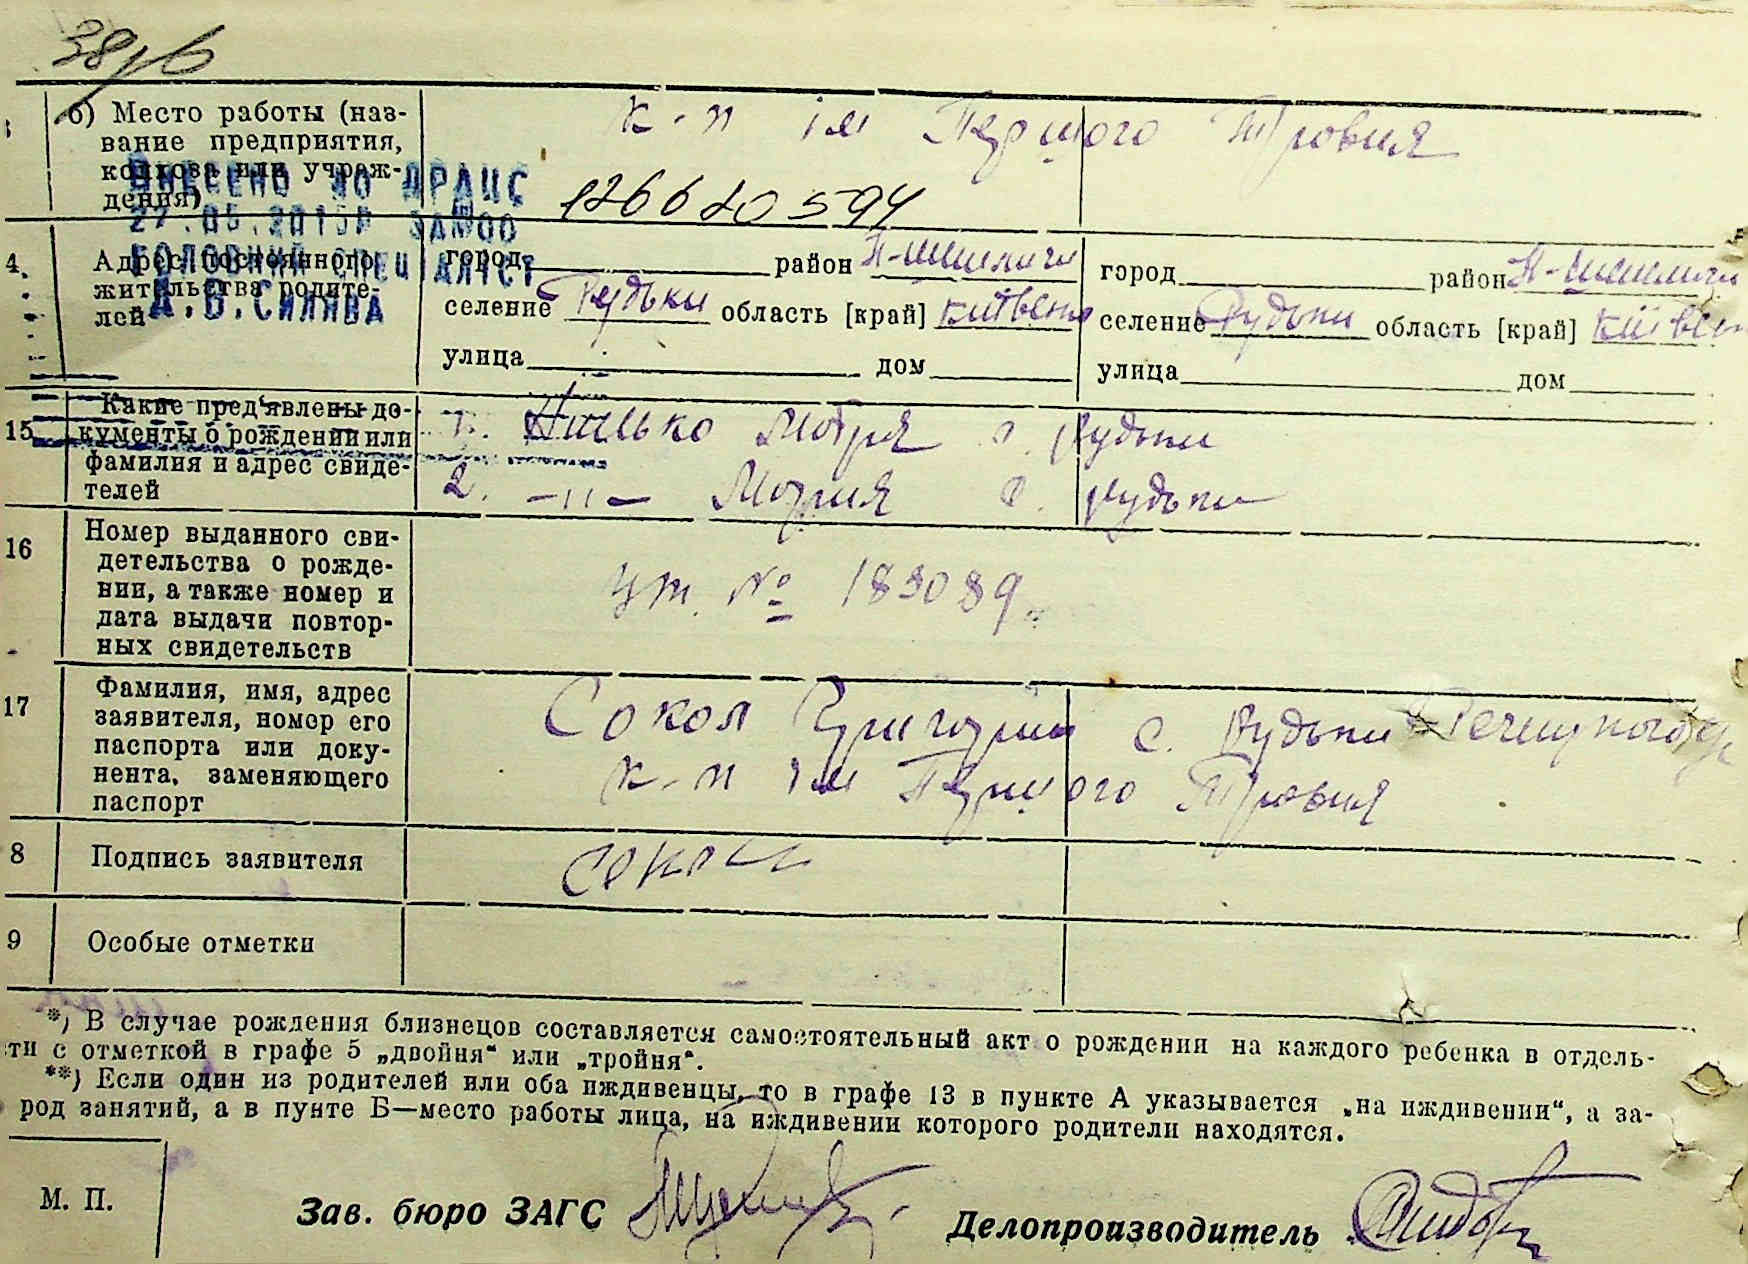 б) Место работы (наз-
вание предприятия,
колхоза или учреж-
дения)
к-п ім Першого Травня
126620594
ВНЕСЕНО ДО ДРАЦС
27.05.2015Р
ГОЛОВНИЙ СПЕЦІАЛІСТ
4. Адрес постоянного
жительства родите-
лей
город район
селение Рудьки область [край]
улица дом
город район
селение Рудьки область [край]
улица дом
15 Какие пред'явлены до-
кументы о рождении или
фамилия и адрес свиде-
телей
1. Мотря с. Рудьки
2. —„— Марія с. Рудьки
16 Номер выданного сви-
детельства о рожде-
нии, а также номер и
дата выдачи повтор-
ных свидетельств
№ 183089
17 Фамилия, имя, адрес
заявителя, номер его
паспорта или доку-
нента, заменяющего
паспорт
Сокол Григорий с. Рудьки
к-п ім Першого Травня
8 Подпись заявителя
Сокол
9 Особые отметки
*) В случае рождения близнецов составляется самостоятельный акт о рождении на каждого ребенка в отдель-
ти с отметкой в графе 5 „двойня“ или „тройня“.
**) Если один из родителей или оба иждивенцы, то в графе 13 в пункте А указывается „на иждивении“, а за-
род занятий, а в пункте Б—место работы лица, на иждивении которого родители находятся.
М. П.
Зав. бюро ЗАГС
Делопроизводитель